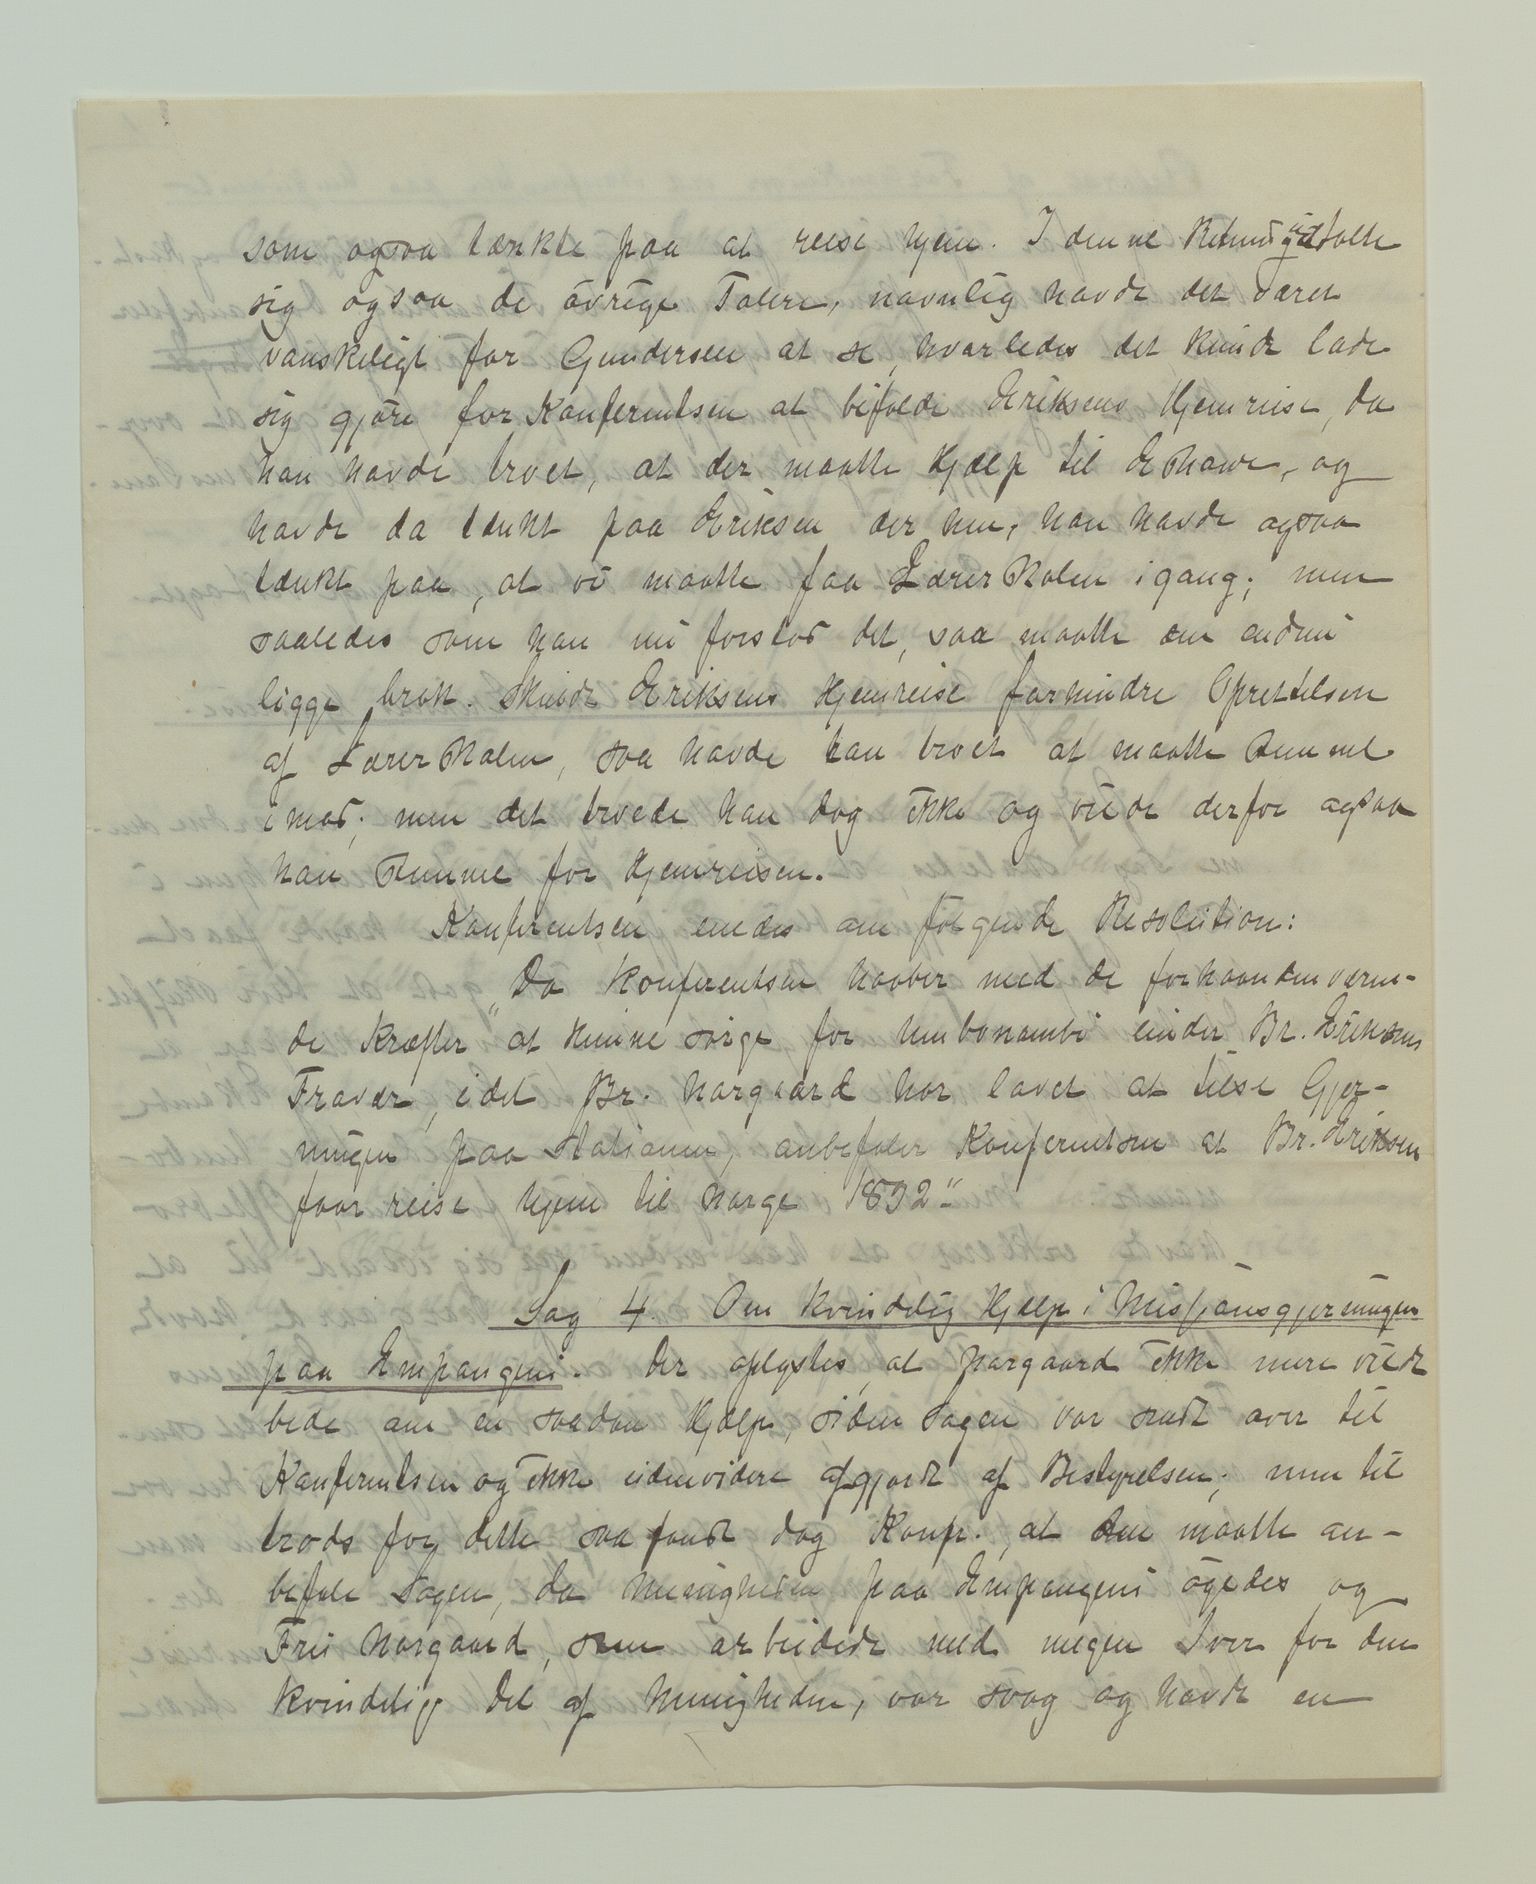 som ogsaa tænkte paa at reise hjem. I denne Retning udtalte
sig ogsaa de øvrige Talere, navnlig havde det været
vanskeligt for Gundersen at se, hvorledes det kunde lade
sig gjøre for Konferentsen at bifolde Eriksens Hjemreise, da
han havde troet, at der maatte Hjælp til Eshowe, og
havde da tænkt paa Eriksen der hen, han havde ogsaa
tænkt paa, at vi maatte faa Lærerskolen igang; men
saaledes som han nu forstod det, saa maatte den endnu
ligge brak. Skulde Eriksens Hjemreise forhindre Oprettelsen
af Lærerskolen, saa havde han troet at maatte stemme
imod; men det troede han dog ikke og vilde derfor ogsaa
han stemme for Hjemreisen.
Konferentsen enedes om følgende Resolution:
„Da Konferentsen haaber med de forhaandenværen-
de Kræfter at kunne sørge for Umbonambi under Br. Eriksens
Fravær, idet Br. Norgaard har lovet at tilse Gjer-
ningen paa Stationen, anbefaler Konferentsen at Br. Eriksen
faar reise hjem til Norge 1892“
Sag 4. Om kvindelig Hjælp i Missjonsgjerningen
paa Empangeni. Der oplystes, at Norgaard ikke mere vilde
bede om en saadan Hjælp, siden Sagen var sendt over til
Konferentsen og ikke udenvidere afgjordt af Bestyrelsen; men til
trods for dette saa fandt dog Konfr. at den maatte an-
befale Sagen, da Menigheden paa Empangeni øgedes og
Fru Norgaard, som arbeidede med megen Iver for den
kvindelige Del af Menigheden, var svag og havde en